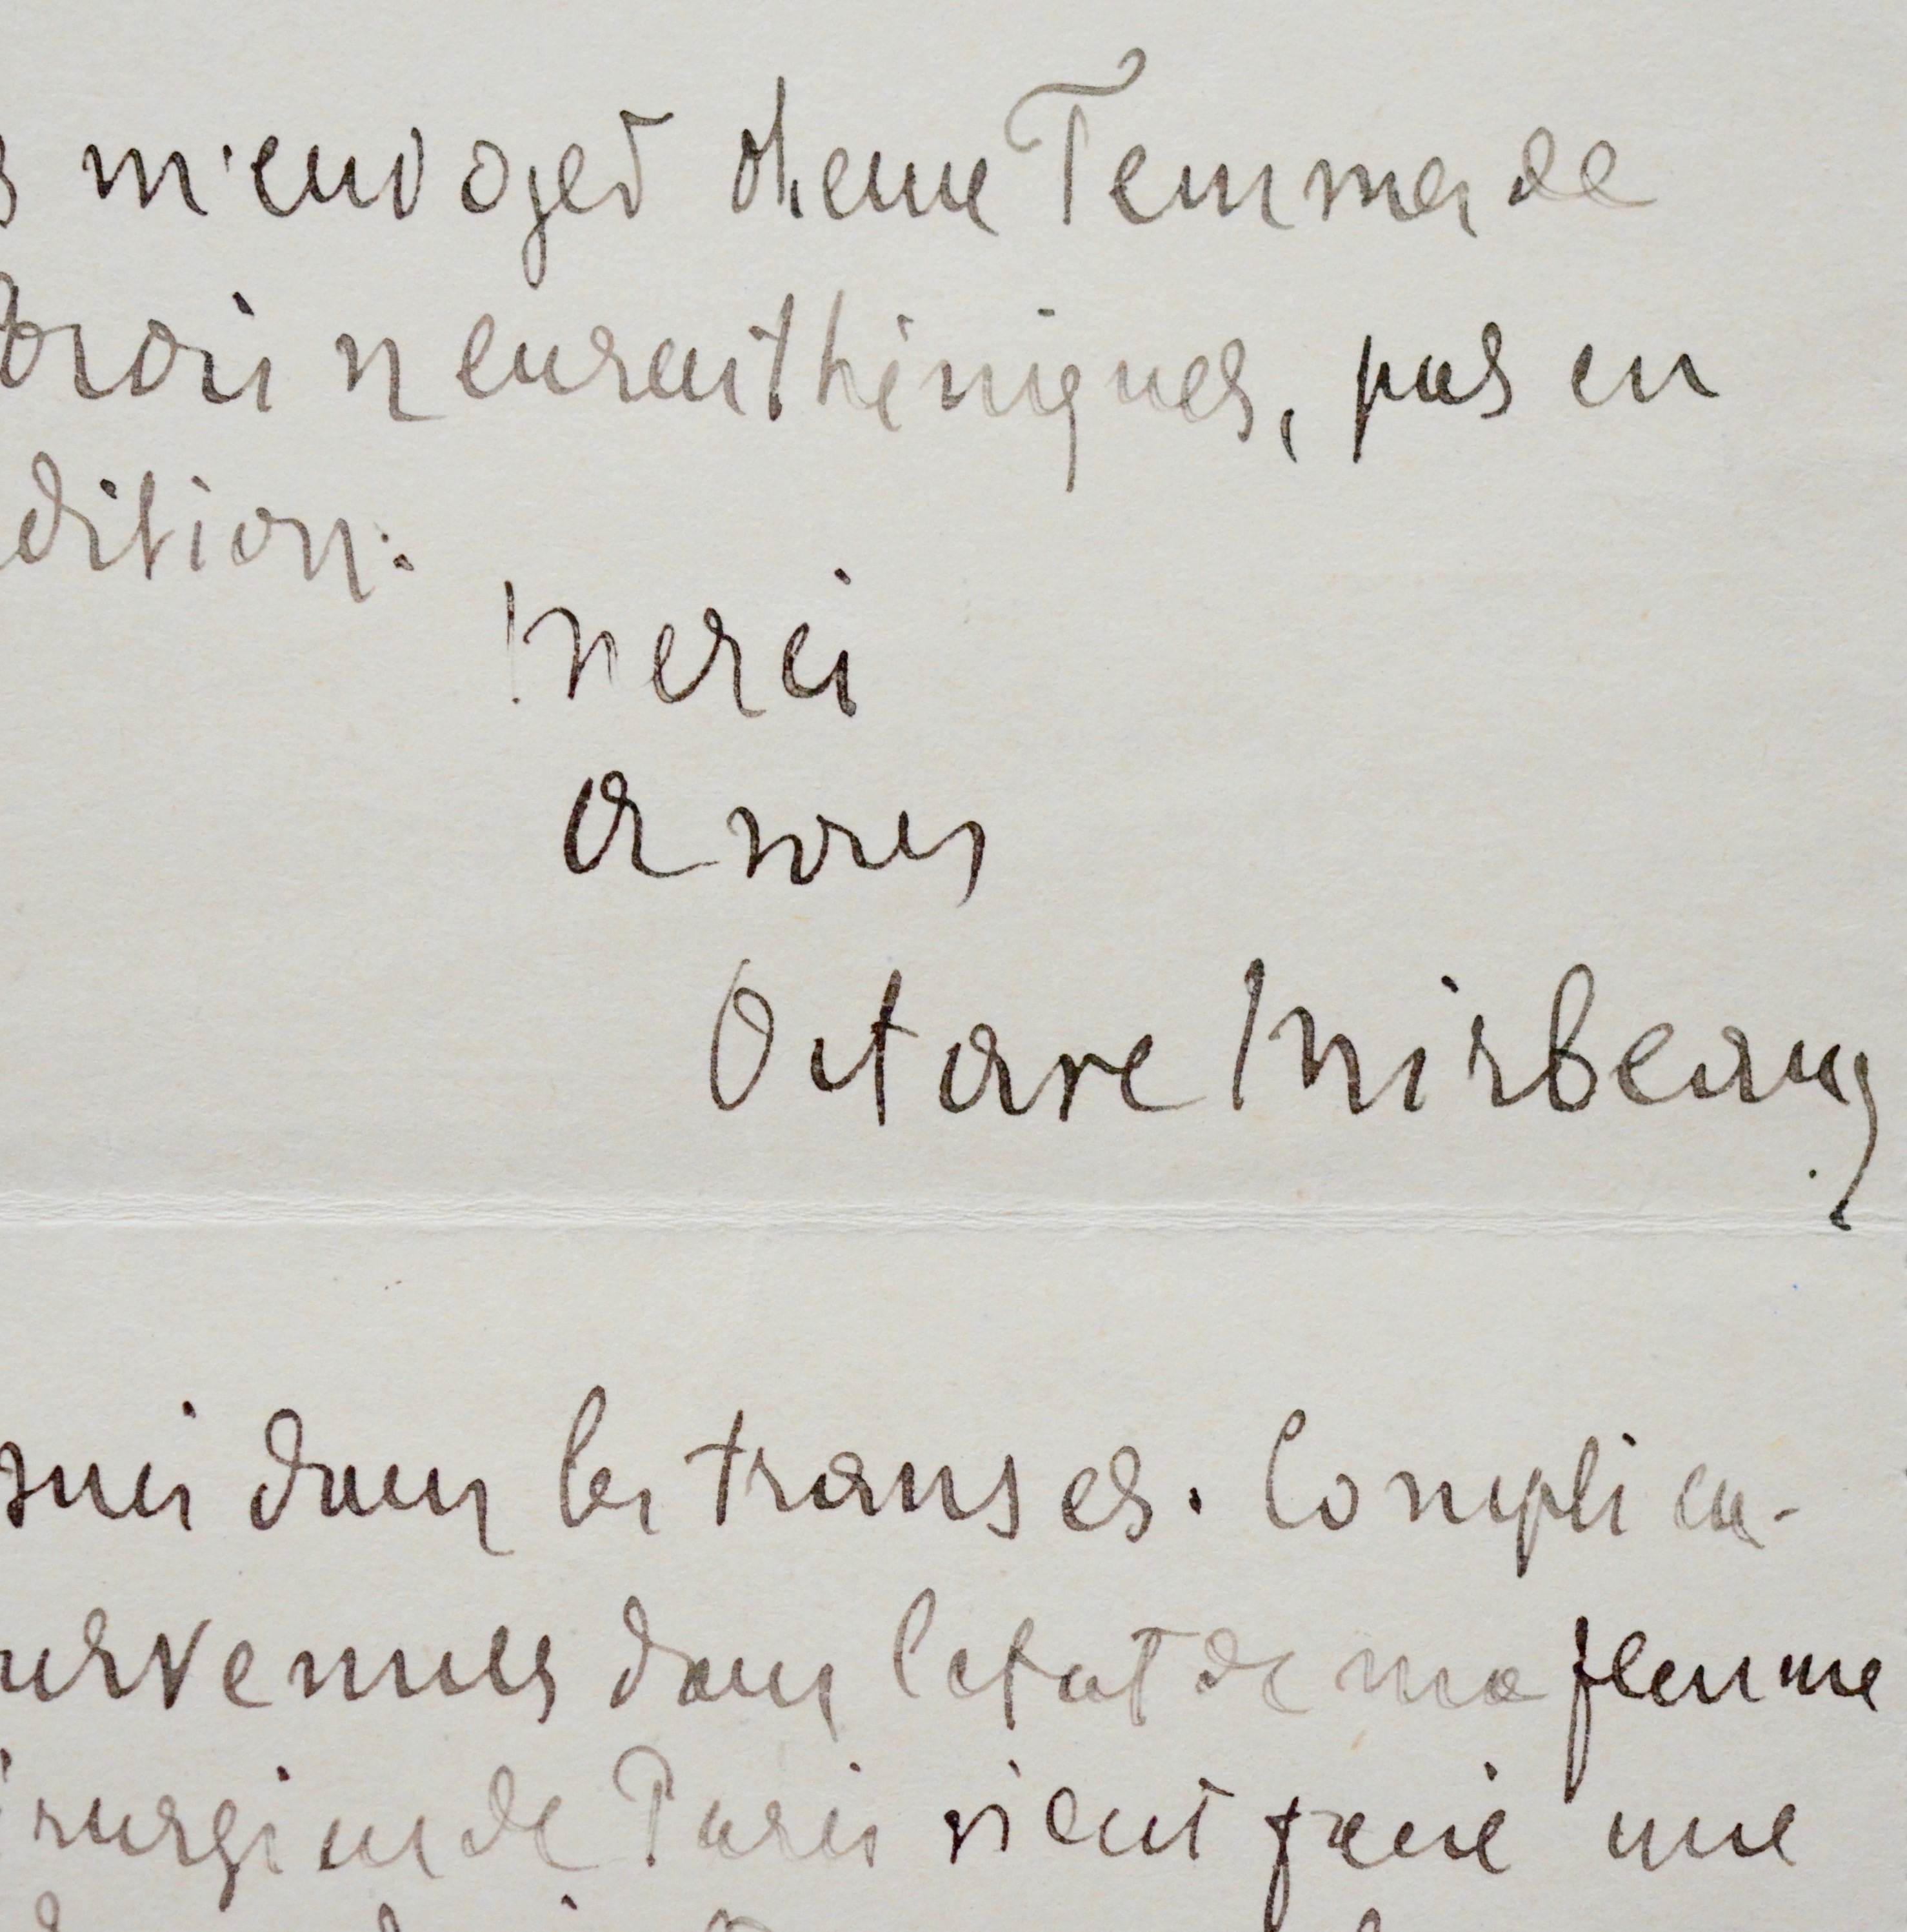 m'envoyez deux Femme de
trois neurasthéniques, pas en
dition.
Merci
à vous
Octave Mirbeau
suis dans les transes. Complica-
urvenues dans l'etat de ma femme
rurgien de Paris vient faire une